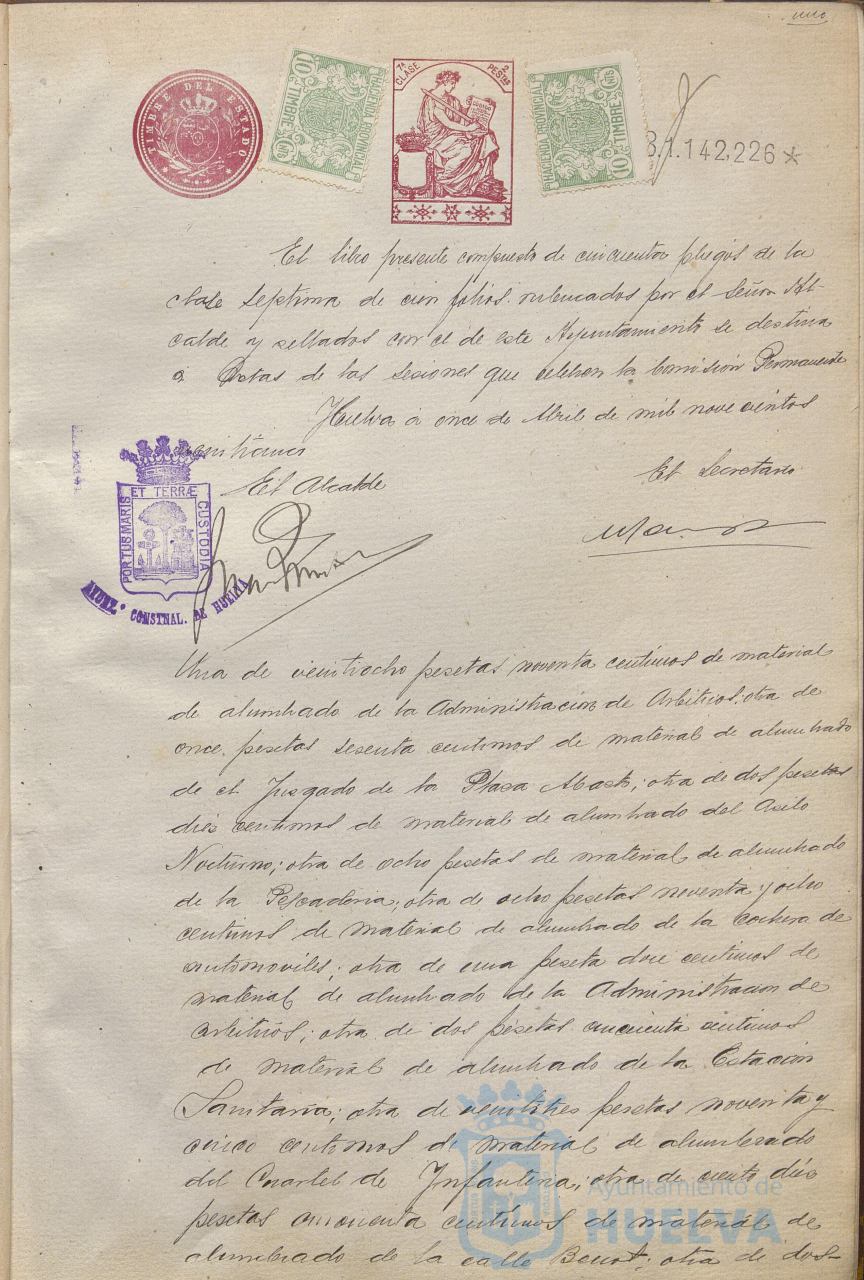 uno
TIMBRE DEL ESTADO
10 CTS
TIMBRE
HACIENDA PROVINCIAL
7ª CLASE
2 PESTAS
CODIGO
HACIENDA PROVINCIAL
10 CTS
TIMBRE
B.1.142,226*
El libro presente compuesto de cincuenta pliegos de la
clase septima de cien folios rubricados por el Señor Al-
calde y sellados con el de este Ayuntamiento se destina
a Actas de las sesiones que celebren la Comisión Permanente
Huelva a once de Abril de mil novecientos
El Alcalde
El Secretario
PORTUS MARIS ET TERRÆ CUSTODIA
AYUNT.º CONSTNAL. DE HUELVA
Una de veintiocho pesetas noventa centimos de material
de alumbrado de la Administracion de Arbitrios; otra de
once pesetas sesenta centimos de material de alumbrado
de el Juzgado de la Plaza Abasto; otra de dos pesetas
diés centimos de material de alumbrado del Asilo
Nocturno; otra de ocho pesetas de material de alumbrado
de la Pescaderia; otra de ocho pesetas noventa y ocho
centimos de material de alumbrado de la cochera de
automoviles; otra de una peseta doce centimos de
material de alumbrado de la Administracion de
arbitrios; otra de dos pesetas cincuenta centimos
de material de alumbrado de la Estación
Sanitaria; otra de veintitres pesetas noventa y
cinco centimos de material de alumbrado
del Cuartel de Infanteria; otra de ciento diés
pesetas cincuenta centimos de material de
alumbrado de la calle Benot; otra de dos-
Ayuntamiento de
HUELVA